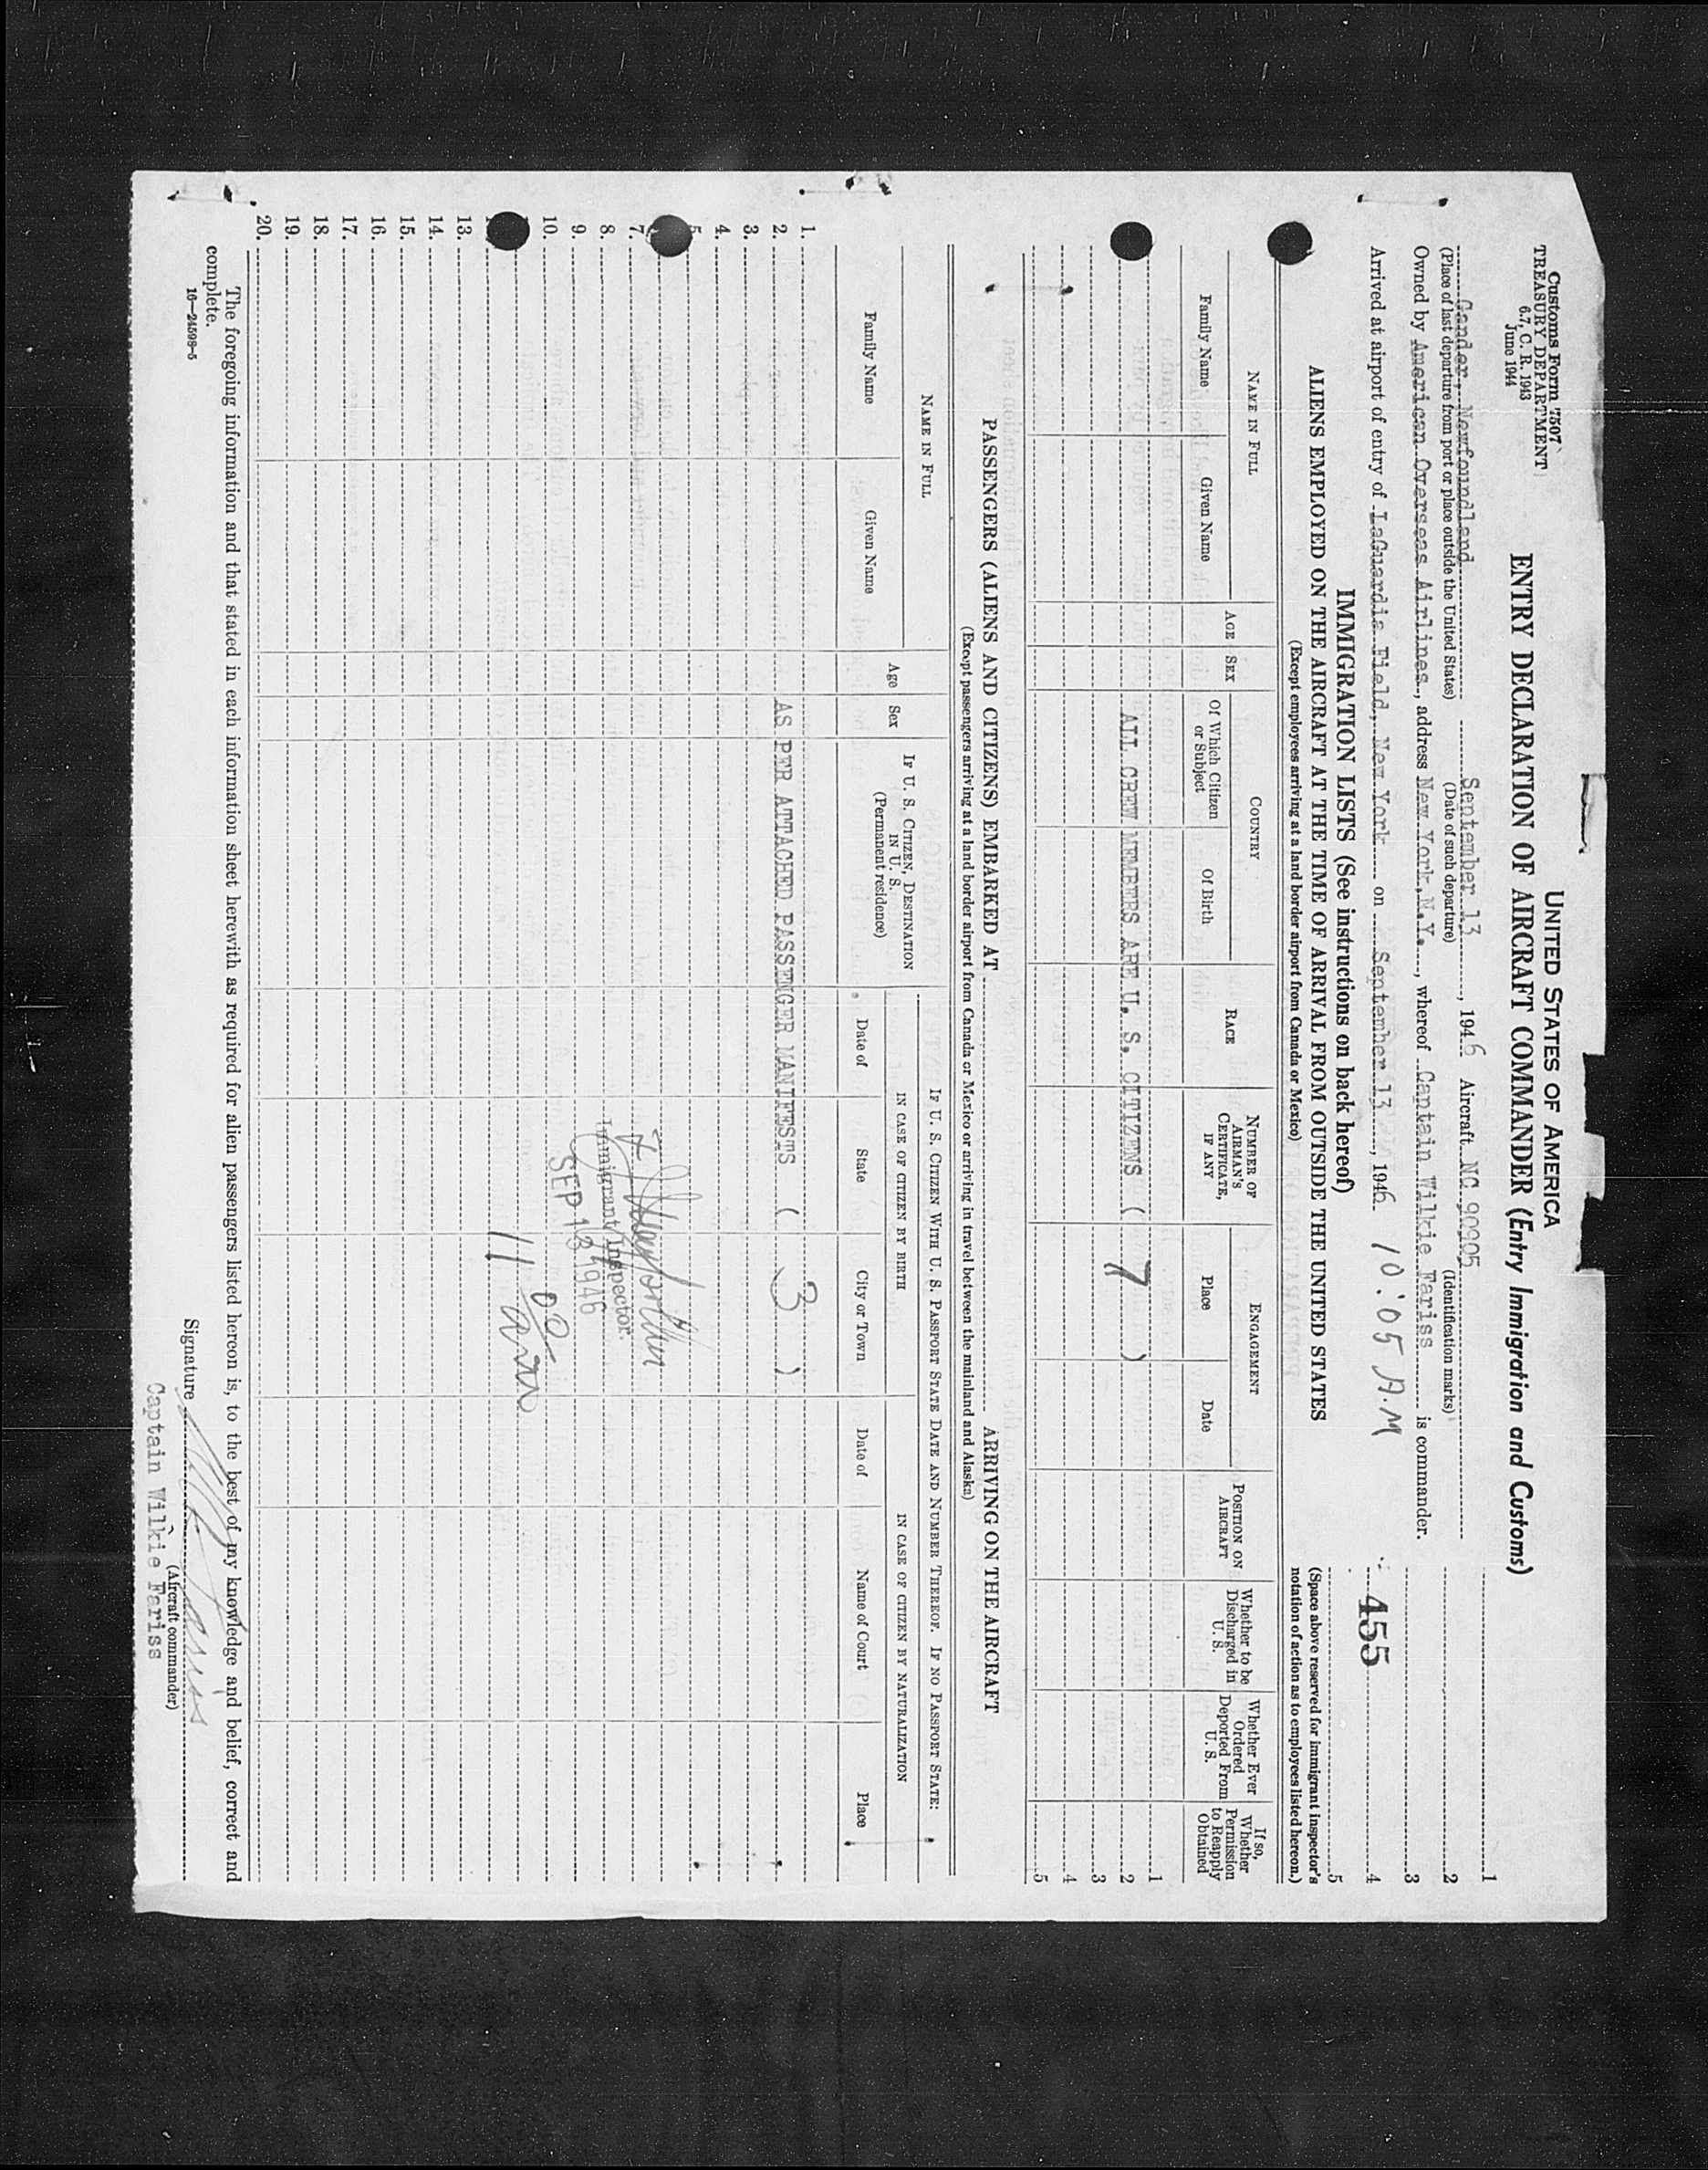 Customs Form 7507
TREASURY DEPARTMENT
6.7, C. R. 1943
June 1944
UNITED STATES OF AMERICA
ENTRY DECLARATION OF AIRCRAFT COMMANDER (Entry Immigration and Customs)
Gander, Newfoundland September 13, 1946 Aircraft NC 90905
(Place of last departure from port or place outside the United States) (Date of such departure) (Identification marks)
Owned by American Overseas Airlines, address New York, N.Y., whereof Captain Wilkie Fariss is commander.
Arrived at airport of entry of LaGuardia Field, New York on September 13, 1946. 10:05 A.M
1
2
3
455 4
5
(Space above reserved for immigrant inspector's
notation of action as to employees listed hereon.)
IMMIGRATION LISTS (See instructions on back hereof)
ALIENS EMPLOYED ON THE AIRCRAFT AT THE TIME OF ARRIVAL FROM OUTSIDE THE UNITED STATES
(Except employees arriving at a land border airport from Canada or Mexico)
NAME IN FULL
Family Name
Given Name
AGE
SEX
COUNTRY
Of Which Citizen
or Subject
Of Birth
RACE
NUMBER OF
AIRMAN'S
CERTIFICATE,
IF ANY
ENGAGEMENT
Place
Date
POSITION ON
AIRCRAFT
Whether to be
Discharged in
U. S.
Whether Ever
Ordered
Deported From
U. S.
If so,
Whether
Permission
to Reapply
Obtained
1
ALL CREW MEMBERS ARE U. S. CITIZENS ( 7 ) 2
3
4
5
PASSENGERS (ALIENS AND CITIZENS) EMBARKED AT ARRIVING ON THE AIRCRAFT
(Except passengers arriving at a land border airport from Canada or Mexico or arriving in travel between the mainland and Alaska)
NAME IN FULL
Family Name
Given Name
Age
Sex
IF U. S. CITIZEN, DESTINATION
IN U. S.
(Permanent residence)
IF U. S. CITIZEN WITH U. S. PASSPORT STATE DATE AND NUMBER THEREOF. IF NO PASSPORT STATE:
IN CASE OF CITIZEN BY BIRTH
Date of
State
City or Town
IN CASE OF CITIZEN BY NATURALIZATION
Date of
Name of Court
Place
1.
2. AS PER ATTACHED PASSENGER MANIFESTS ( 3 )
3.
4.
5.
7.
8. Immigrant Inspector.
9. SEP 13 1946
10.
11 00 am
13.
14.
15.
16.
17.
18.
19.
20.
The foregoing information and that stated in each information sheet herewith as required for alien passengers listed hereon is, to the best of my knowledge and belief, correct and
complete.
16—24598-5
Signature
(Aircraft commander)
Captain Wilkie Fariss